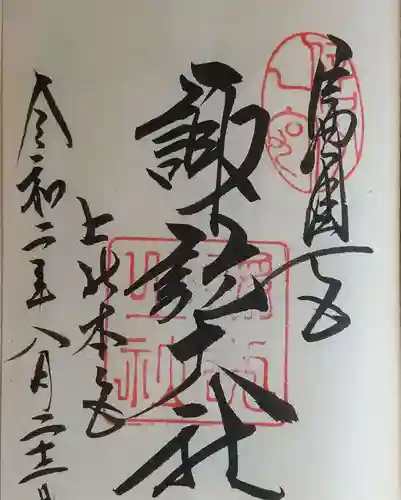 信濃國一宮
諏訪大社
上社本宮
令和二年八月二十三日